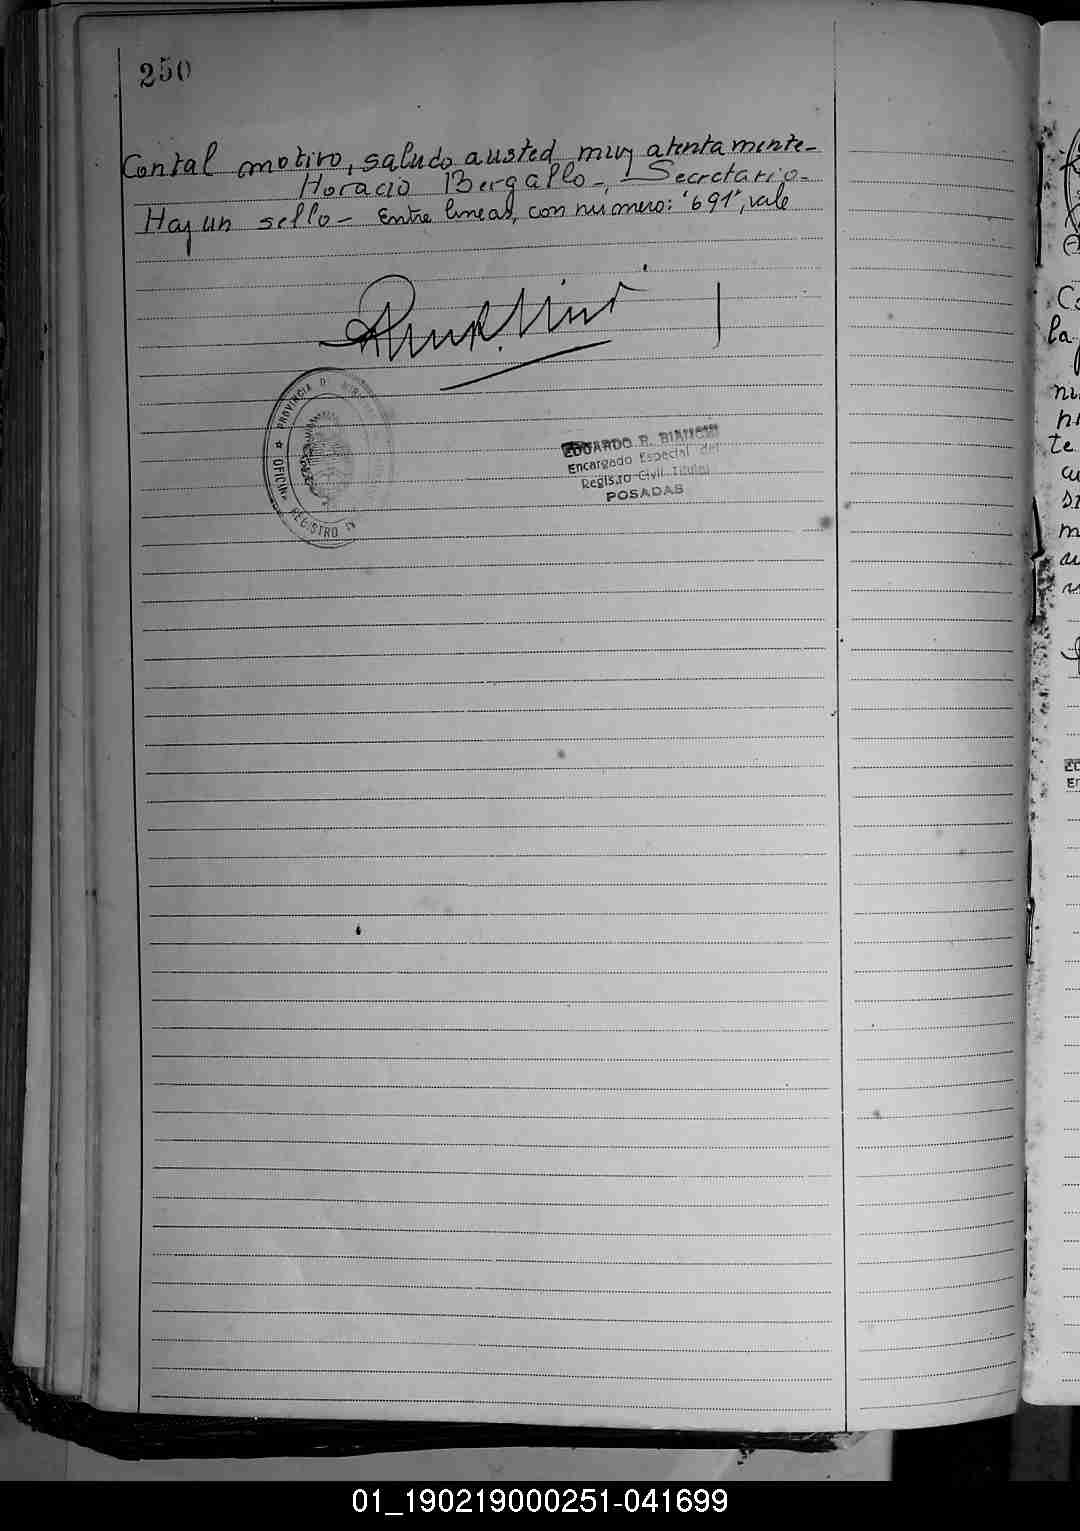 250
Contal motivo, saludo austed muy atentamente-
Horacio Bergallo-, Secretario-
Hay un sello- Entre lineas, con numero: "691", vale
PROVINCIA D MISIO
OFICINA REGISTRO
EDUARDO R. BIANCHI
Encargado Especial del
Registro Civil Titular
POSADAS
Ca
la
nu
te
m
01_190219000251-041699